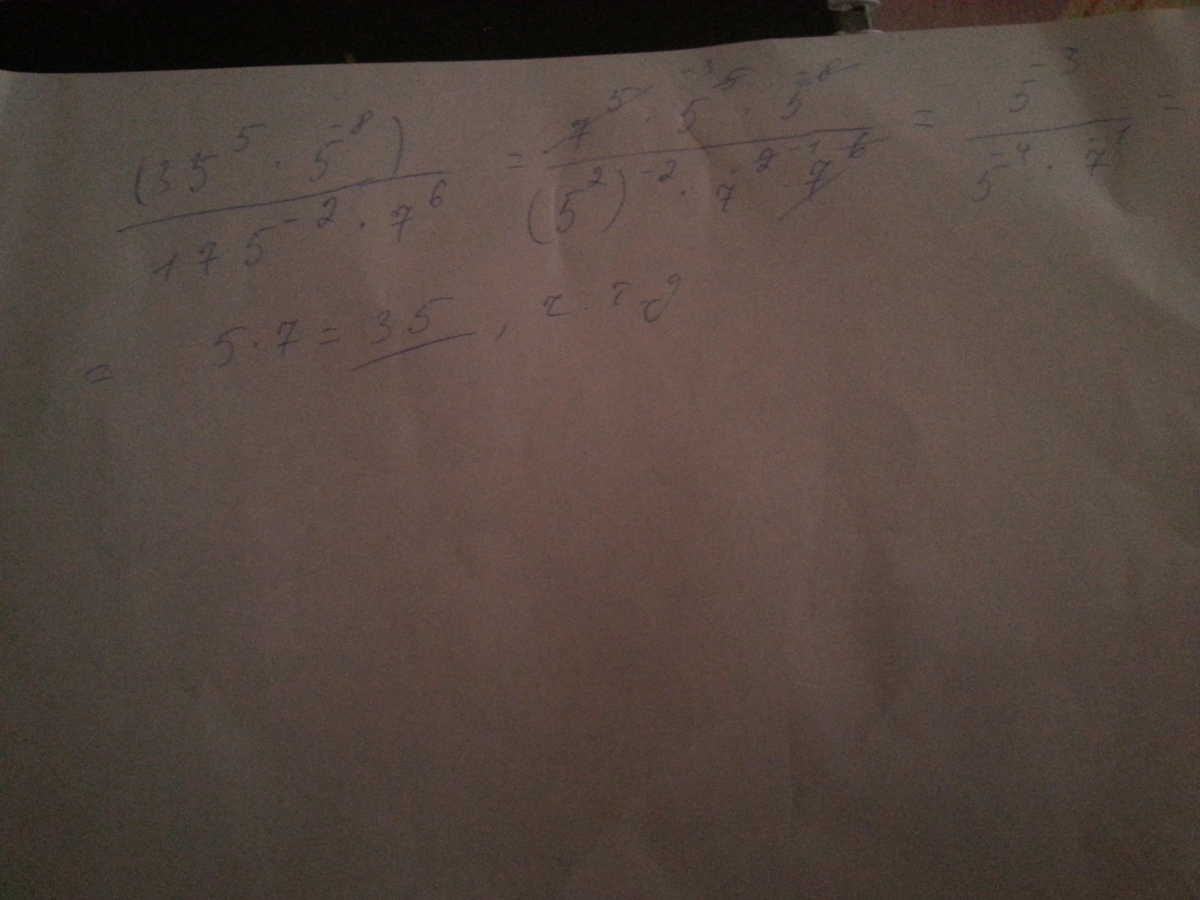 (35^5 · 5^-8) / 175^-2 · 7^6 = 7^5 · 5^5 · 5^-8 / (5^2)^-2 · 7^-2 · 7^6 = 5^-3 / 5^-4 · 7^-1 =
= 5·7 = 35, ч.т.д